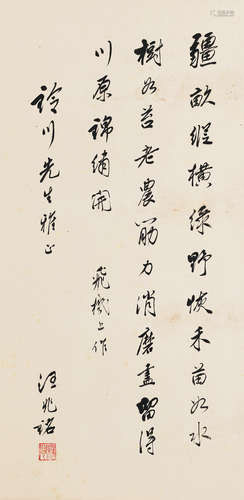 疆畝縱橫綠野恢禾苗如水
樹如苔老農筋力消磨盡留得
川原錦繡開 飛機上作
川先生雅正
汪兆銘